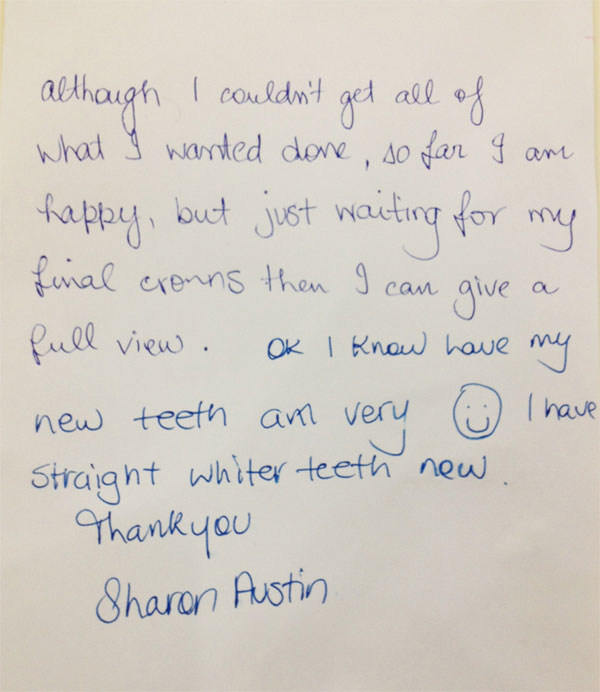 although I couldn't get all of
what I wanted done, so far I am
happy, but just waiting for my
final crowns then I can give a
full view. OK I Know have my
new teeth am very ☺ I have
straight whiter teeth new.
Thankyou
Sharon Austin